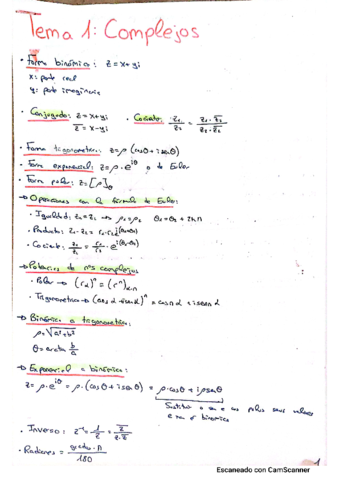 Tema 1: Complejos
· Forma binómica: z = x + yi
x: parte real
y: parte imaginaria
· Conjugado: z = x + yi
z̅ = x - yi
· Cociente: z₁/z₂ = z₁·z̅₂/z₂·z̅₂
· Forma trigonométrica: z = ρ(cosθ + i senθ)
· Forma exponencial: z = ρ·e^iθ o de Euler
· Forma polar: z = [ρ]θ
→ Operaciones con la fórmula de Euler:
· Igualdad: z₁ = z₂ → ρ₁ = ρ₂ θ₂ = θ₁ + 2kπ
· Producto: z₁·z₂ = r₁·r₂
· Cociente: z₁/z₂ = r₁/r₂ · e^i(θ₁-θ₂)
→ Potencias de nºs complejos
· Polar → (rα)ⁿ = (rⁿ)α·n
· Trigonométrica → (cos α + i sen α)ⁿ
→ Binómica a trigonométrica:
ρ = √a² + b²
θ = arctg b/a
→ Exponencial a binómica:
z = ρ·e^iθ = ρ·(cosθ + i senθ) = ρ cosθ + iρ senθ
Sustituir o sen e cos polos seus valores
e xa é binómica
· Inverso: z⁻¹ = 1/z = z̅/z·z̅
· Radianes = grados·π/180
1
Escaneado con CamScanner